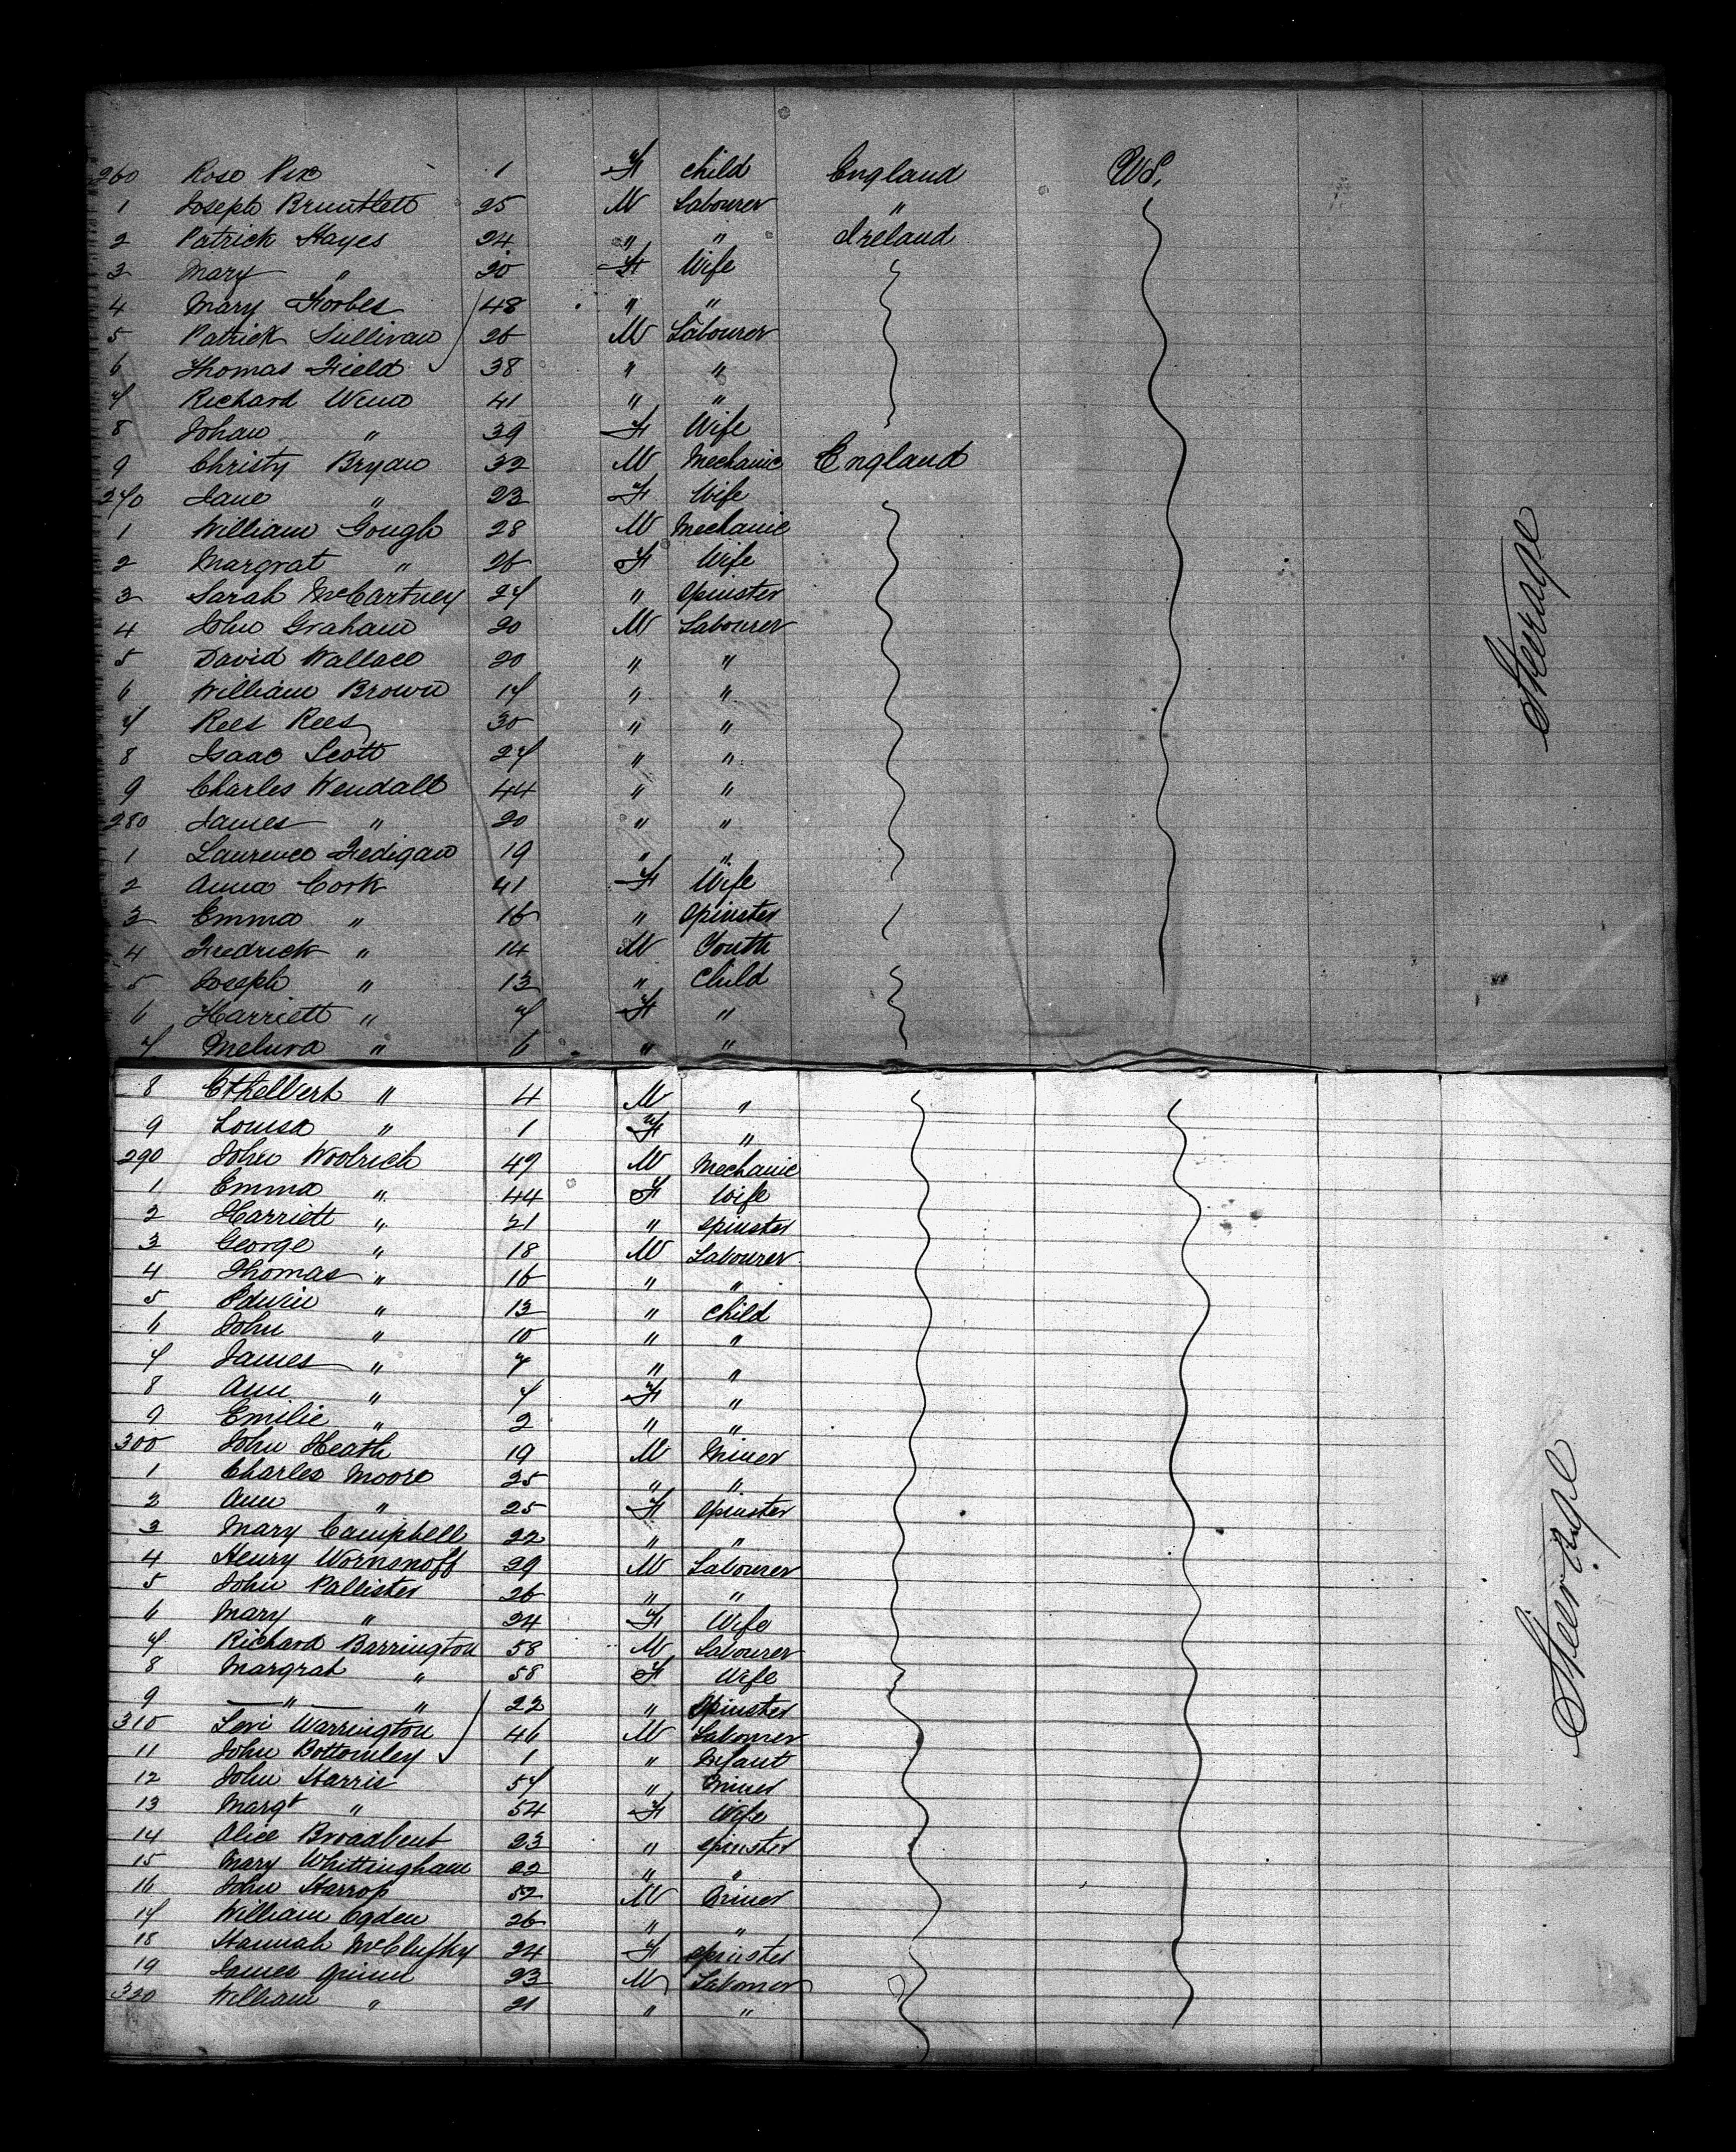 260 Rose Pix 1 F Child England U.S.
1 Joseph Bruntlett 25 M Labourer "
2 Patrick Hayes 24 " " Ireland
3 Mary " 20 F Wife
4 Mary Forbes 48 " "
5 Patrick Sullivan 26 M Labourer
6 Thomas Field 38 " "
7 Richard 41 " "
8 Johan " 39 F Wife
9 Christy Bryan 32 M Mechanic England
270 Jane " 23 F Wife
1 William Gough 28 M Mechanic
2 Margrat " 26 F Wife
3 Sarah McCartney 27 " Spinster
4 John Graham 20 M Labourer
5 David Wallace 20 " "
6 William Brown 17 " "
7 Rees Rees 30 " "
8 Isaac Scott 27 " "
9 Charles Wendalt 44 " "
280 James " 20 " "
1 Laurence Fedigan 19 " "
2 Anna Cork 41 F Wife
3 Emma " 16 " Spinster
4 Fredrick " 14 M Youth
5 Joseph " 13 " Child
6 Harriett " 7 F "
7 Melura " 6 " "
Steerage
8 Ethelbert " 4 M "
9 Louisa " 1 F "
290 John Woolrich 49 M Mechanic
1 Emma " 44 F Wife
2 Harriett " 21 " Spinster
3 George " 18 M Labourer
4 Thomas " 16 " "
5 Edwin " 13 " Child
6 John " 10 " "
7 James " 7 " "
8 Ann " 4 F "
9 Emilie " 2 " "
300 John Heath 19 M Miner
1 Charles Moore 25 " "
2 Ann " 25 F Spinster
3 Mary Campbell 22 " "
4 Henry Wornsnoff 29 M Labourer
5 John Pallister 26 " "
6 Mary " 24 F Wife
7 Richard Barrington 58 M Labourer
8 Margrat " 58 F Wife
9 " " 22 " Spinster
310 Levi Warrington 46 M Labourer
11 John Bottomley 1 " Infant
12 John Harris 57 " Miner
13 Margt " 54 F Wife
14 Alice Broadbent 23 " Spinster
15 Mary Whittingham 22 " "
16 John Harrop 52 M Miner
17 William Ogden 26 " "
18 Hannah McClusky 24 F Spinster
19 James Quinn 23 M Labourer
320 William " 21 " "
Steerage